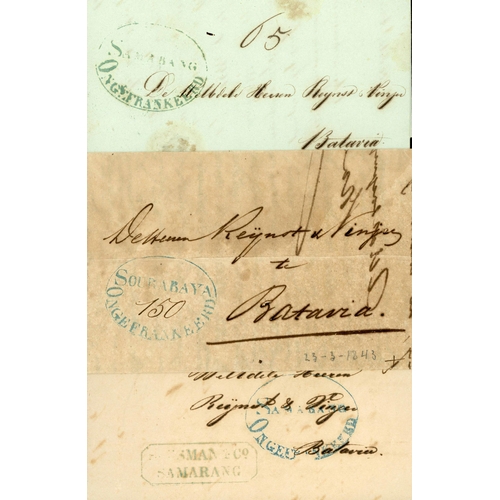 65
SAMARANG
ONGEFRANKEERD
De WelEdele Heeren Reynst & Vinju
Batavia
De Heeren Reijnst & Vinju
te
SOERABAYA
150
ONGEFRANKEERD
Batavia.
25-3-1843
WelEdele Heeren
Reijnst & Vinju
SAMARANG
ONGEFRANKEERD
Batavia.
& CO
SAMARANG